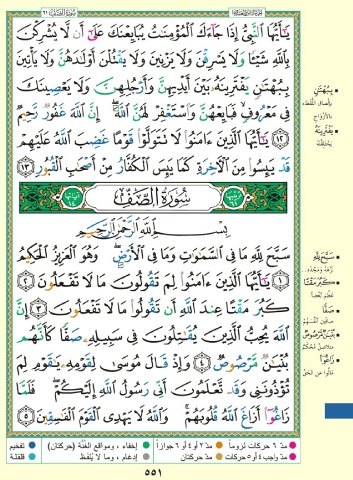 سُورَةُ المُمْتَحَنَةِ ٦٠
يَٰٓأَيُّهَا ٱلنَّبِىُّ إِذَا جَآءَكَ ٱلْمُؤْمِنَٰتُ يُبَايِعْنَكَ عَلَىٰٓ أَن لَّا يُشْرِكْنَ
بِٱللَّهِ شَيْـًٔا وَلَا يَسْرِقْنَ وَلَا يَزْنِينَ وَلَا يَقْتُلْنَ أَوْلَٰدَهُنَّ وَلَا يَأْتِينَ
بِبُهْتَٰنٍ يَفْتَرِينَهُۥ بَيْنَ أَيْدِيهِنَّ وَأَرْجُلِهِنَّ وَلَا يَعْصِينَكَ
فِى مَعْرُوفٍ فَبَايِعْهُنَّ وَٱسْتَغْفِرْ لَهُنَّ ٱللَّهَ إِنَّ ٱللَّهَ غَفُورٌ رَّحِيمٌ
١٢ يَٰٓأَيُّهَا ٱلَّذِينَ ءَامَنُوا۟ لَا تَتَوَلَّوْا۟ قَوْمًا غَضِبَ ٱللَّهُ عَلَيْهِمْ
قَدْ يَئِسُوا۟ مِنَ ٱلْءَاخِرَةِ كَمَا يَئِسَ ٱلْكُفَّارُ مِنْ أَصْحَٰبِ ٱلْقُبُورِ ١٣
سُورَةُ الصَّفِّ
بِسْمِ ٱللَّهِ ٱلرَّحْمَٰنِ ٱلرَّحِيمِ
سَبَّحَ لِلَّهِ مَا فِى ٱلسَّمَٰوَٰتِ وَمَا فِى ٱلْأَرْضِ وَهُوَ ٱلْعَزِيزُ ٱلْحَكِيمُ
١ يَٰٓأَيُّهَا ٱلَّذِينَ ءَامَنُوا۟ لِمَ تَقُولُونَ مَا لَا تَفْعَلُونَ ٢
كَبُرَ مَقْتًا عِندَ ٱللَّهِ أَن تَقُولُوا۟ مَا لَا تَفْعَلُونَ ٣ إِنَّ
ٱللَّهَ يُحِبُّ ٱلَّذِينَ يُقَٰتِلُونَ فِى سَبِيلِهِۦ صَفًّا كَأَنَّهُم
بُنْيَٰنٌ مَّرْصُوصٌ ٤ وَإِذْ قَالَ مُوسَىٰ لِقَوْمِهِۦ يَٰقَوْمِ لِمَ
تُؤْذُونَنِى وَقَد تَّعْلَمُونَ أَنِّى رَسُولُ ٱللَّهِ إِلَيْكُمْ فَلَمَّا
زَاغُوٓا۟ أَزَاغَ ٱللَّهُ قُلُوبَهُمْ وَٱللَّهُ لَا يَهْدِى ٱلْقَوْمَ ٱلْفَٰسِقِينَ ٥
بِبُهْتَٰنٍ
بإلصاق اللقطاء
بالأزواج
يَفْتَرِينَهُ
يختلقنه
سَبَّحَ لِلَّهِ
نزّهه ومجّده..
كَبُرَ مَقْتًا
عظم بُغضًا
صَفًّا
صافّين أنفسهم
بُنْيَٰنٌ مَّرْصُوصٌ
متلاصق محكم
زَاغُوا
مالوا عن الحق
مدّ ٦ حركات لزوماً
مدّ ٢ أو ٤ أو ٦ جوازاً
إخفاء، ومواقع الغنّة (حركتان)
تفخيم
مدّ واجب ٤ أو ٥ حركات
مدّ حركتان
إدغام، وما لا يُلفظ
قلقلة
٥٥١